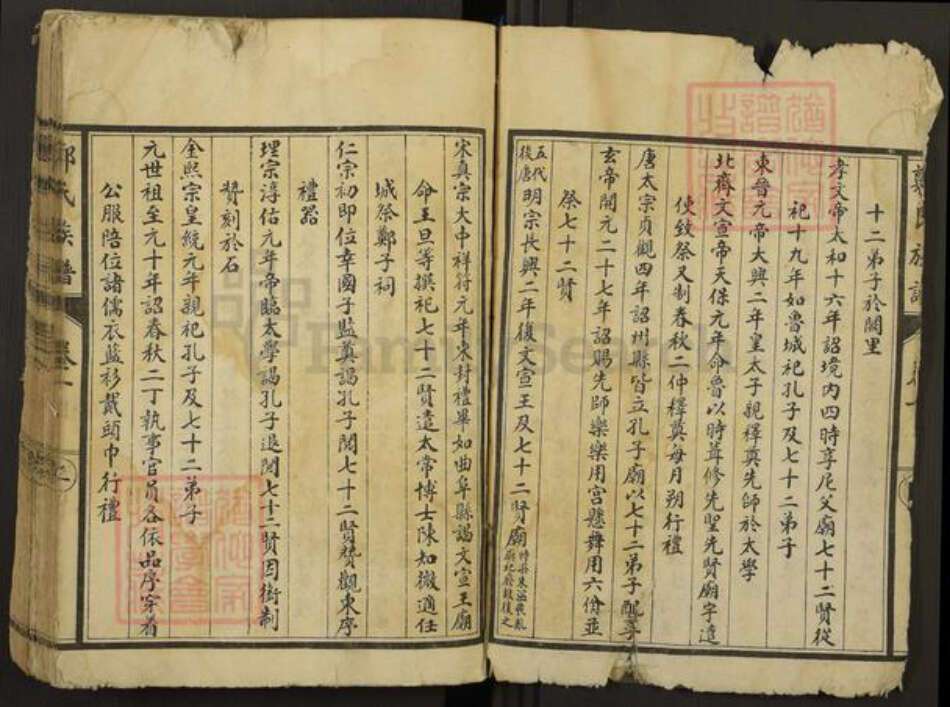 十二弟子於闕里
孝文帝太和十六年詔境內四時享尼父廟七十二賢從
祀十九年如魯城祀孔子及七十二弟子
東晉元帝大興二年皇太子親釋奠先師於太學
北齊文宣帝天保元年命魯以時葺修先聖先賢廟宇遣
使致祭又制春秋二仲釋奠每月朔行禮
唐太宗貞觀四年詔州縣皆立孔子廟以七十二弟子配享
玄帝開元二十七年詔賜先師樂樂用宮懸舞用六佾並
祭七十二賢
五代後唐明宗長興二年復文宣王及七十二賢廟
宋真宗大中祥符元年東封禮畢如曲阜縣謁文宣王廟
命王旦等撰祀七十二賢遣太常博士陳知微適任
城祭鄭子祠
仁宗初即位幸國子監奠謁孔子閱七十二賢贊觀東序
禮器
理宗淳佑元年帝臨太學謁孔子退閱七十二賢因街制
贊刻於石
金熙宗皇統元年親祀孔子及七十二弟子
元世祖至元十年詔春秋二丁執事官員各依品序穿着
公服陪位諸儒衣藍衫戴頭巾行禮
氏族譜
卷一